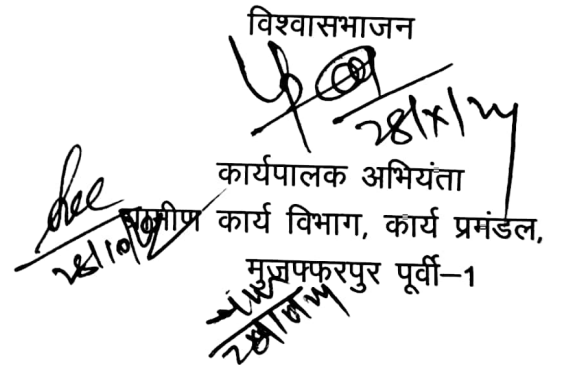 विश्वासभाजन
28/X/24
कार्यपालक अभियंता
ग्रामीण कार्य विभाग, कार्य प्रमंडल,
28/10/24
मुजफ्फरपुर पूर्वी–1
28/10/24